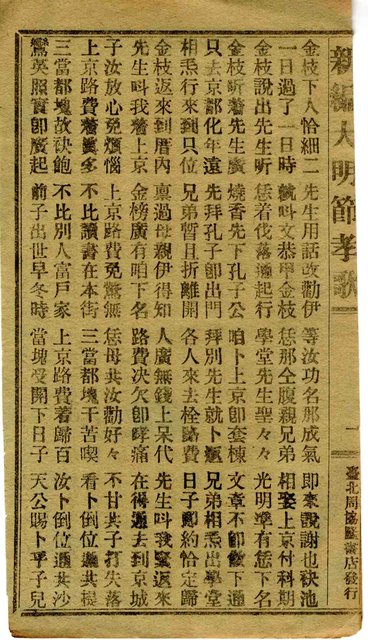 新編大明節孝歌
一
臺北周協隆書店發行
金枝下人恰細二 先生用話改勸伊 等汝功名那成氣 即來說謝也袂池
一日過了一日時 號叫文恭甲金枝 恁那仝腹親兄弟 相娶上京付科期
金枝說出先生听 恁着伐落通起行 學堂先生聖々々 光明準有恁下名
金枝听着先生廣 燒香先下孔子公 咱卜上京即套棟 文章不卸即下通
只去京都化年遠 先拜孔子即出門 拜別先生就卜返 兄弟相焉出學堂
相焉行來到只位 兄弟暫且折離開 各人來去栓路費 日子即約恰定歸
金枝返來到厝內 禀過母親伊得知 人廣無錢上呆代 先生叫我緊返來
先生叫我着上京 金榜廣有咱下名 路費决欠即哮痛 在得通去到京城
子汝放心免煩惱 上京路費免驚無 恁母共汝勸好々 不甘共子打失落
上京路費着錢多 不比讀書在本街 三當都塊干苦喫 看卜倒位通共提
三當都塊欲袂飽 不比別人富戶家 上京路費着歸百 汝卜倒位通共沙
鸞英照實即廣起 前子出世早冬時 當塊受閒下日子 天公賜卜乎子兒